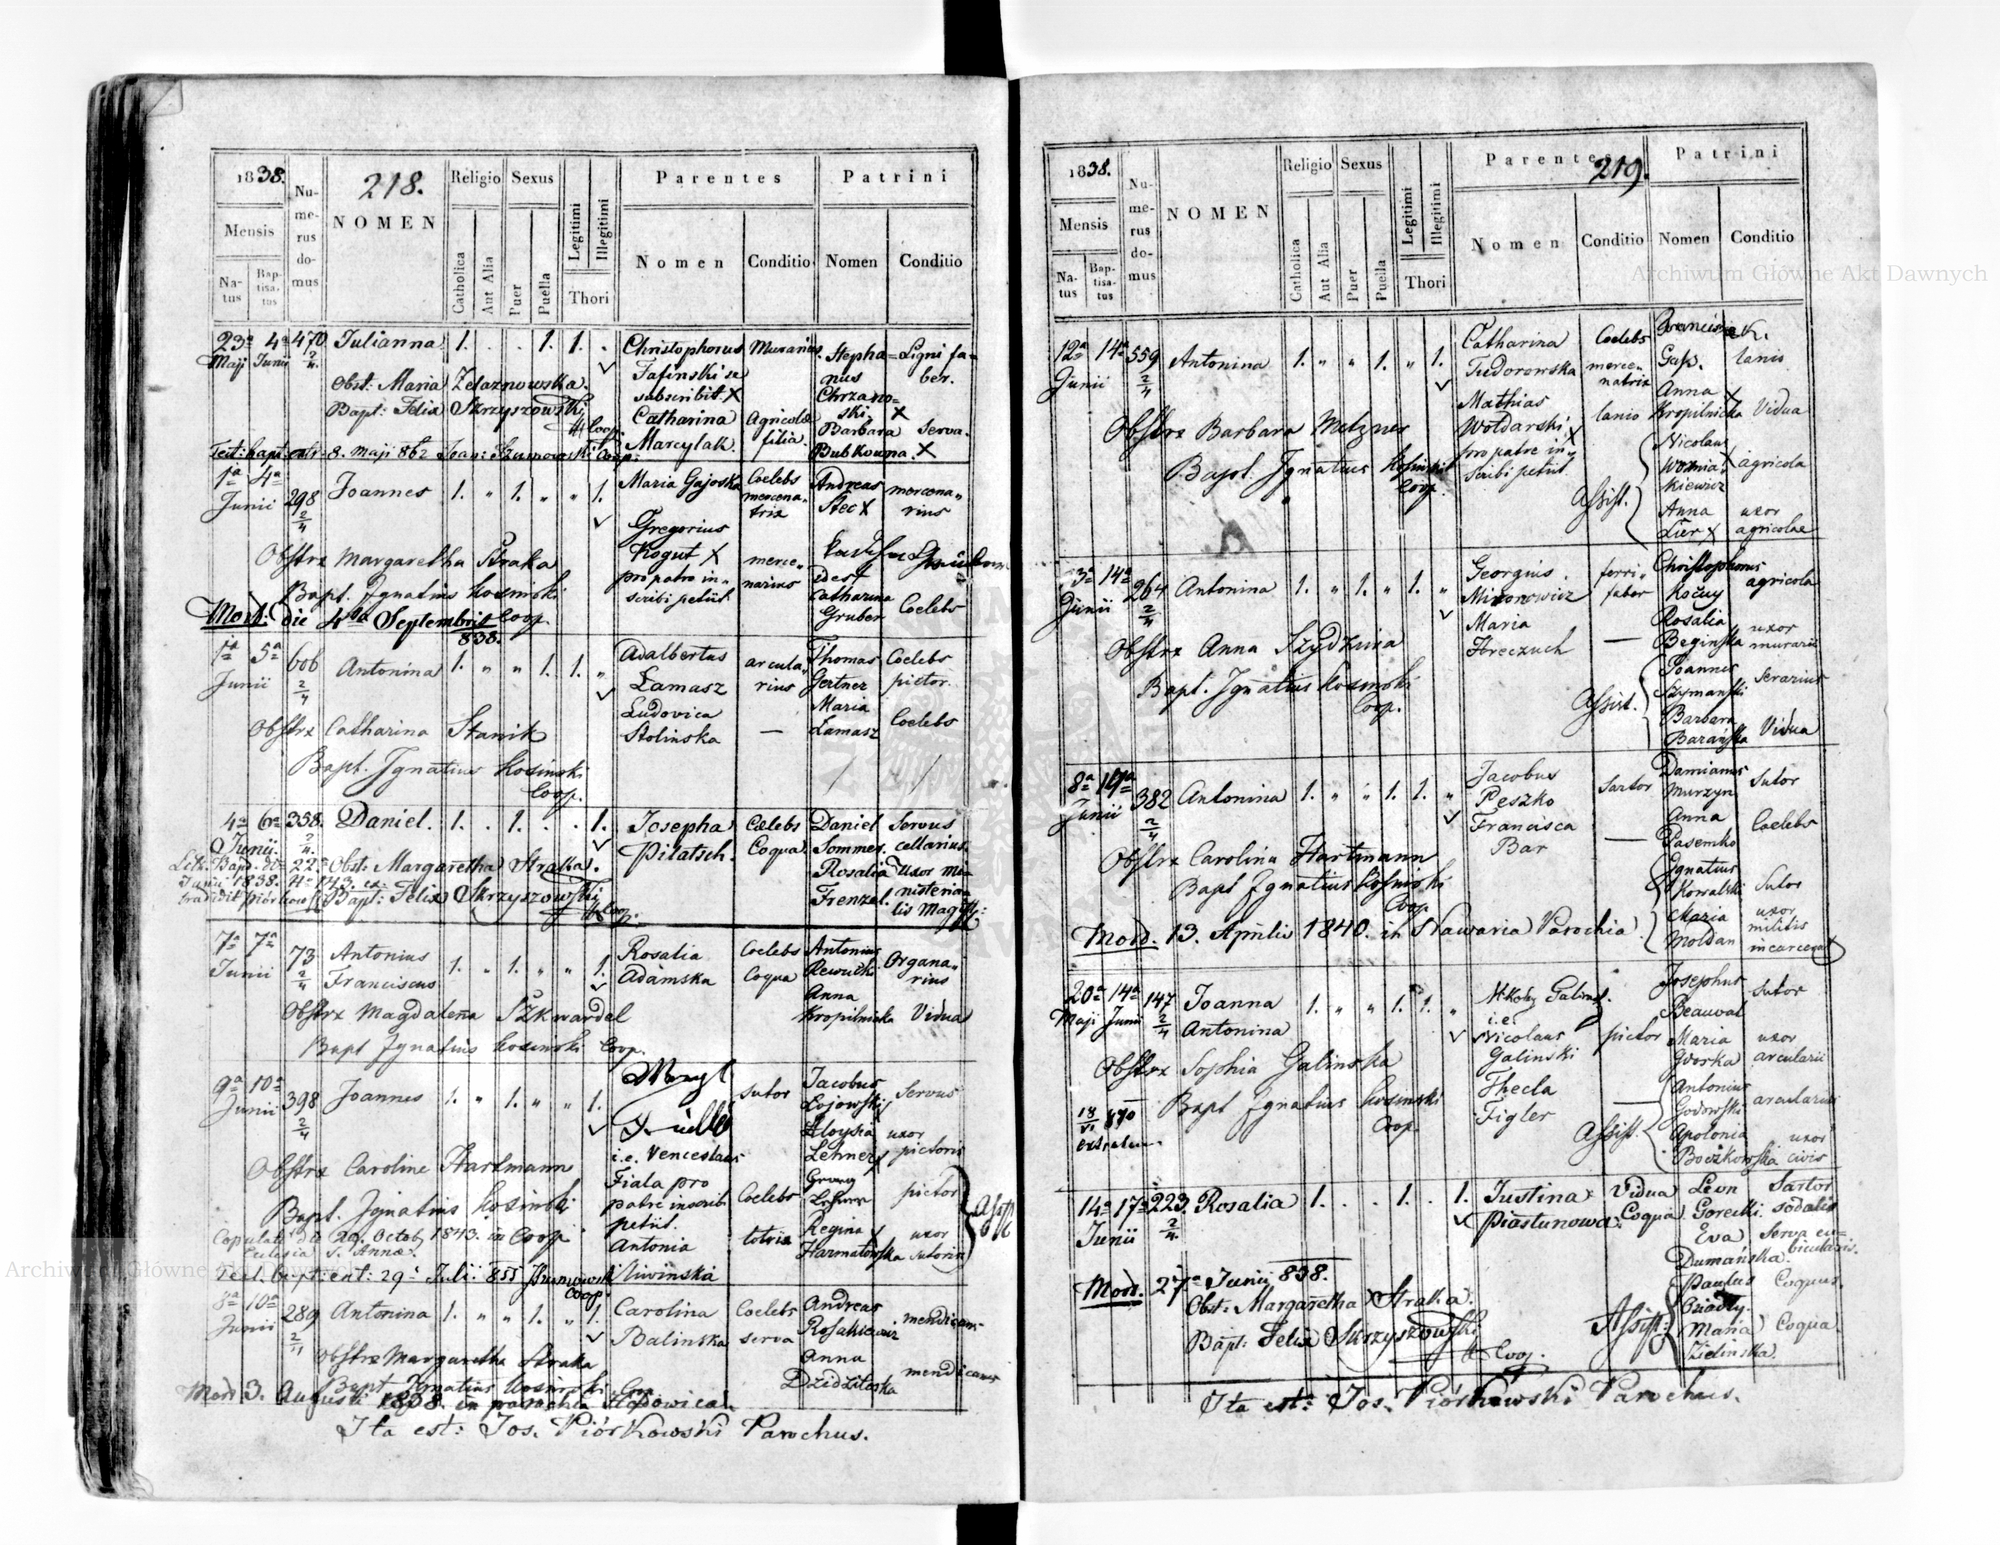 1838.
218.
Numerus domus
NOMEN
Religio
Sexus
Legitimi
Illegitimi
Parentes
Patrini
Mensis
Natus
Baptisatus
Catholica
Aut Alia
Puer
Puella
Thori
Nomen
Conditio
Nomen
Conditio
23ª 4ª 470 Julianna 1. . . 1. 1. .
Maji Junii 2/4
Christophorus Murarius
subscribit X
Catharina Agricolæ
Marcylak. filia.
Stephanus Ligni faber.
Chrzanoski. X
Barbara Serva.
Bubkowna. X
Obst: Maria Zelaznowska.
Bapt: Felix Skrzyszowski
Coop.
Test: bapt: extr. 8. Maji 862 Joan: Szumowski Coop:
1ª 4ª
Junii 298 Joannes 1. " 1. " " 1.
2/4
Maria Gajoska Coelebs mercenatrix
Gregorius
Kogut X mercenarius
pro patre inscribi petiit.
Andreas mercenarius
Stec X
idest
Catharina Coelebs
Gruber
Obstrx Margaretha Straka
Bapt. Ignatius Kosinski
Coop.
Mort: die 4ta Septembris
838.
1ª 5ª 606 Antonina 1. " " 1. 1. "
Junii 2/4
Adalbertus arcularius
Łamasz
Ludovica
Stolinska —
Thomas Coelebs
Gertner pictor.
Maria
Łamasz Coelebs
Obstrx Catharina Stanik
Bapt. Ignatius Kosinski
Coop.
4ª 6ª 358. Daniel. 1. . 1. . . 1.
Junii. 2/4.
Josepha Cœlebs
Pilatsch. Coqua.
Daniel Servus
Sommer. cellarius.
Rosalia Uxor ministerialis Magist:
Frenzel.
Obst: Margaretha Straka.
Junii 1838.
Bapt: Felix Skrzyszowski
Coop.
7ª 7ª 73 Antonius
Junii 2/4 Franciscus 1. " 1. " " 1.
Rosalia Coelebs
Adamska Coqua
Antonius Organarius
Rewucki
Anna
Kropilnicka Vidua
Obstrx Magdalena Szkwardel
Bapt Ignatius Kosinski Coop.
9ª 10ª
Junii 398 Joannes 1. " 1. " " 1.
2/4
Sutor
i.e. Venceslaus
Fiala pro
patre inscribi
petiit.
Antonia Coelebs
Sliwinska lotrix
Jacobus Servus
Łojowski
Aloysia uxor
Lehner X pictoris
Georg pictor
Lehner
Regina X uxor
Harmatowska sutoris
Assist.
Obstrx Caroline Hartmann
Bapt. Ignatius Kosinski
Coop
Copulat: die 24. Octob 1843. in
Eclesia S. Annæ.
Test. bapt: ext: 29ª Julii 855
Coop.
8ª 10ª 289 Antonina 1. " " 1. " 1.
Junii 2/4
Carolina Coelebs
Balinska serva
Andreas mendicans
Rosakiewicz
Anna
Dzedzileska mendicans
Obstrx Margaretha Straka
Bapt Ignatius Kosinski Coop.
Mort 3. Augusti 1838. in parochia Hodowica.
Ita est: Jos. Piórkowski Parochus.
1838.
219.
Numerus domus
NOMEN
Religio
Sexus
Legitimi
Illegitimi
Parentes
Patrini
Mensis
Natus
Baptisatus
Catholica
Aut Alia
Puer
Puella
Thori
Nomen
Conditio
Nomen
Conditio
12ª 14ª 559 Antonina 1. " " 1. " 1.
Junii 2/4
Catharina Coelebs
Tudorowska mercenatrix
Mathias
Woldarski X lanio
pro patre inscribi petiit.
Gass. lanio
Anna X
Kropilnicka Vidua
Assist.
Nicolaus
Wozniakiewicz agricola
Anna uxor
Lier X agricolae
Obstrx Barbara Metzner
Bapt. Ignatius Kosinski
Coop.
3ª 14ª 264 Antonina 1. " 1. " 1. "
Junii 2/4
Georgius ferri faber
Mironowicz
Maria
Hreczuch —
Christophorus agricola
Kočuy
Rosalia uxor
Beginska murarii
Assist.
Joannes serarius
Szymanski
Barbara
Baranska Vidua
Obstrx Anna Szydzina
Bapt. Ignatius Kosinski
Coop.
8ª 14ª 382 Antonina 1. " " 1. 1. "
Junii 2/4
Jacobus Sartor
Peszko
Francisca
Bar —
Damianus Sutor
Murzyn
Anna Coelebs
Pasemko
Ignatius
Kowalski Sutor
Maria uxor
Moldan militis
Obstrx Carolina Hartmann
Bapt Ignatius Kosinski
Coop
Mort. 13. Aprilis 1840. in Nawaria Parochia.
20ª 14ª 147 Joanna 1. " " 1. 1. "
Maji Junii 2/4 Antonina
i.e.
Nicolaus pictor
Galinski
Thecla
Figler —
Josephus Sutor
Beauval
Maria uxor
Gworka arcularii
Assist.
Antonius
Godowski arcularius
Apolonia uxor
Boczkowska civis
Obstrx Sophia Galinska
Bapt Ignatius Kosinski
Coop.
18/VI 870
extratum.
14ª 17ª 223. Rosalia 1. . . 1. . 1.
Junii 2/4.
Justina Vidua
Piastunowa. Coqua
Leon Sartor
Gorecki. sodalis
Eva Serva cubicularis.
Dumańska.
Assist:
Paulus Coquus.
Maria Coqua.
Zielinska.
Mort. 27ª Junii 838.
Obst: Margaretha Straka.
Bapt: Felix Skrzyszowski
Coop.
Ita est: Jos. Piórkowski Parochus.
Archiwum Główne Akt Dawnych
Archiwum Główne Akt Dawnych